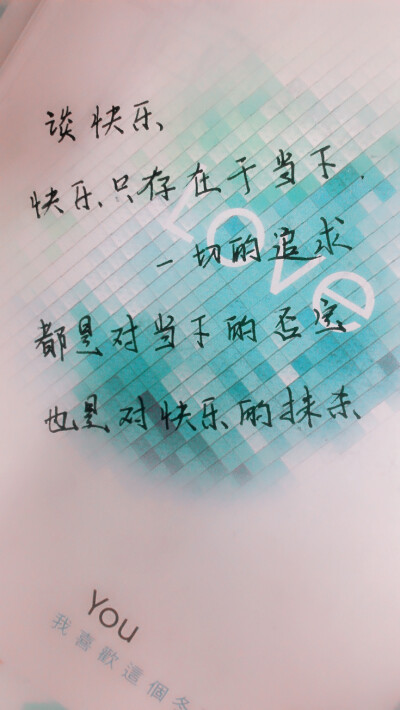 谈快乐
快乐只存在于当下.
Love
一切的追求
都是对当下的否定
也是对快乐的抹杀
You
我喜歡這個冬